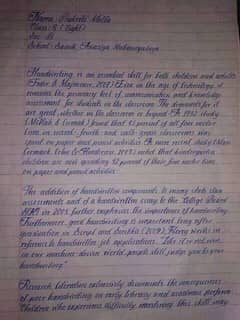 Name:
Class: 8 (Eight)
Sec: B
School:
Handwriting is an essential skill for both children and adults
(Feder & Majnemer, 2007). Even in the age of technology, it
remains the primary tool of communication and knowledge
assessment for students in the classroom. The demands for it
are great, whether in the classroom or beyond. A 1992 study
(McHale & Cermak) found that 85 percent of all fine motor
time in second- fourth- and sixth- grade classrooms was
spent on paper and pencil activities. A more recent study (Marr,
Cermak, Cohn & Henderson, 2003) noted that kindergarten
children are now spending 42 percent of their fine motor time
on paper and pencil activities.
The addition of handwritten components to many state
assessments and of a handwritten essay to the College Board
SAT in 2005 further emphasize the importance of handwriting.
Furthermore, good handwriting is important long after
graduation
reference to handwritten job applications, "Like it or not, even
in our machine driven world, people still judge you by your
handwriting."
Research literature extensively documents the consequences
of poor handwriting on early literacy and academic performance
Children who experience difficulty mastering this skill may